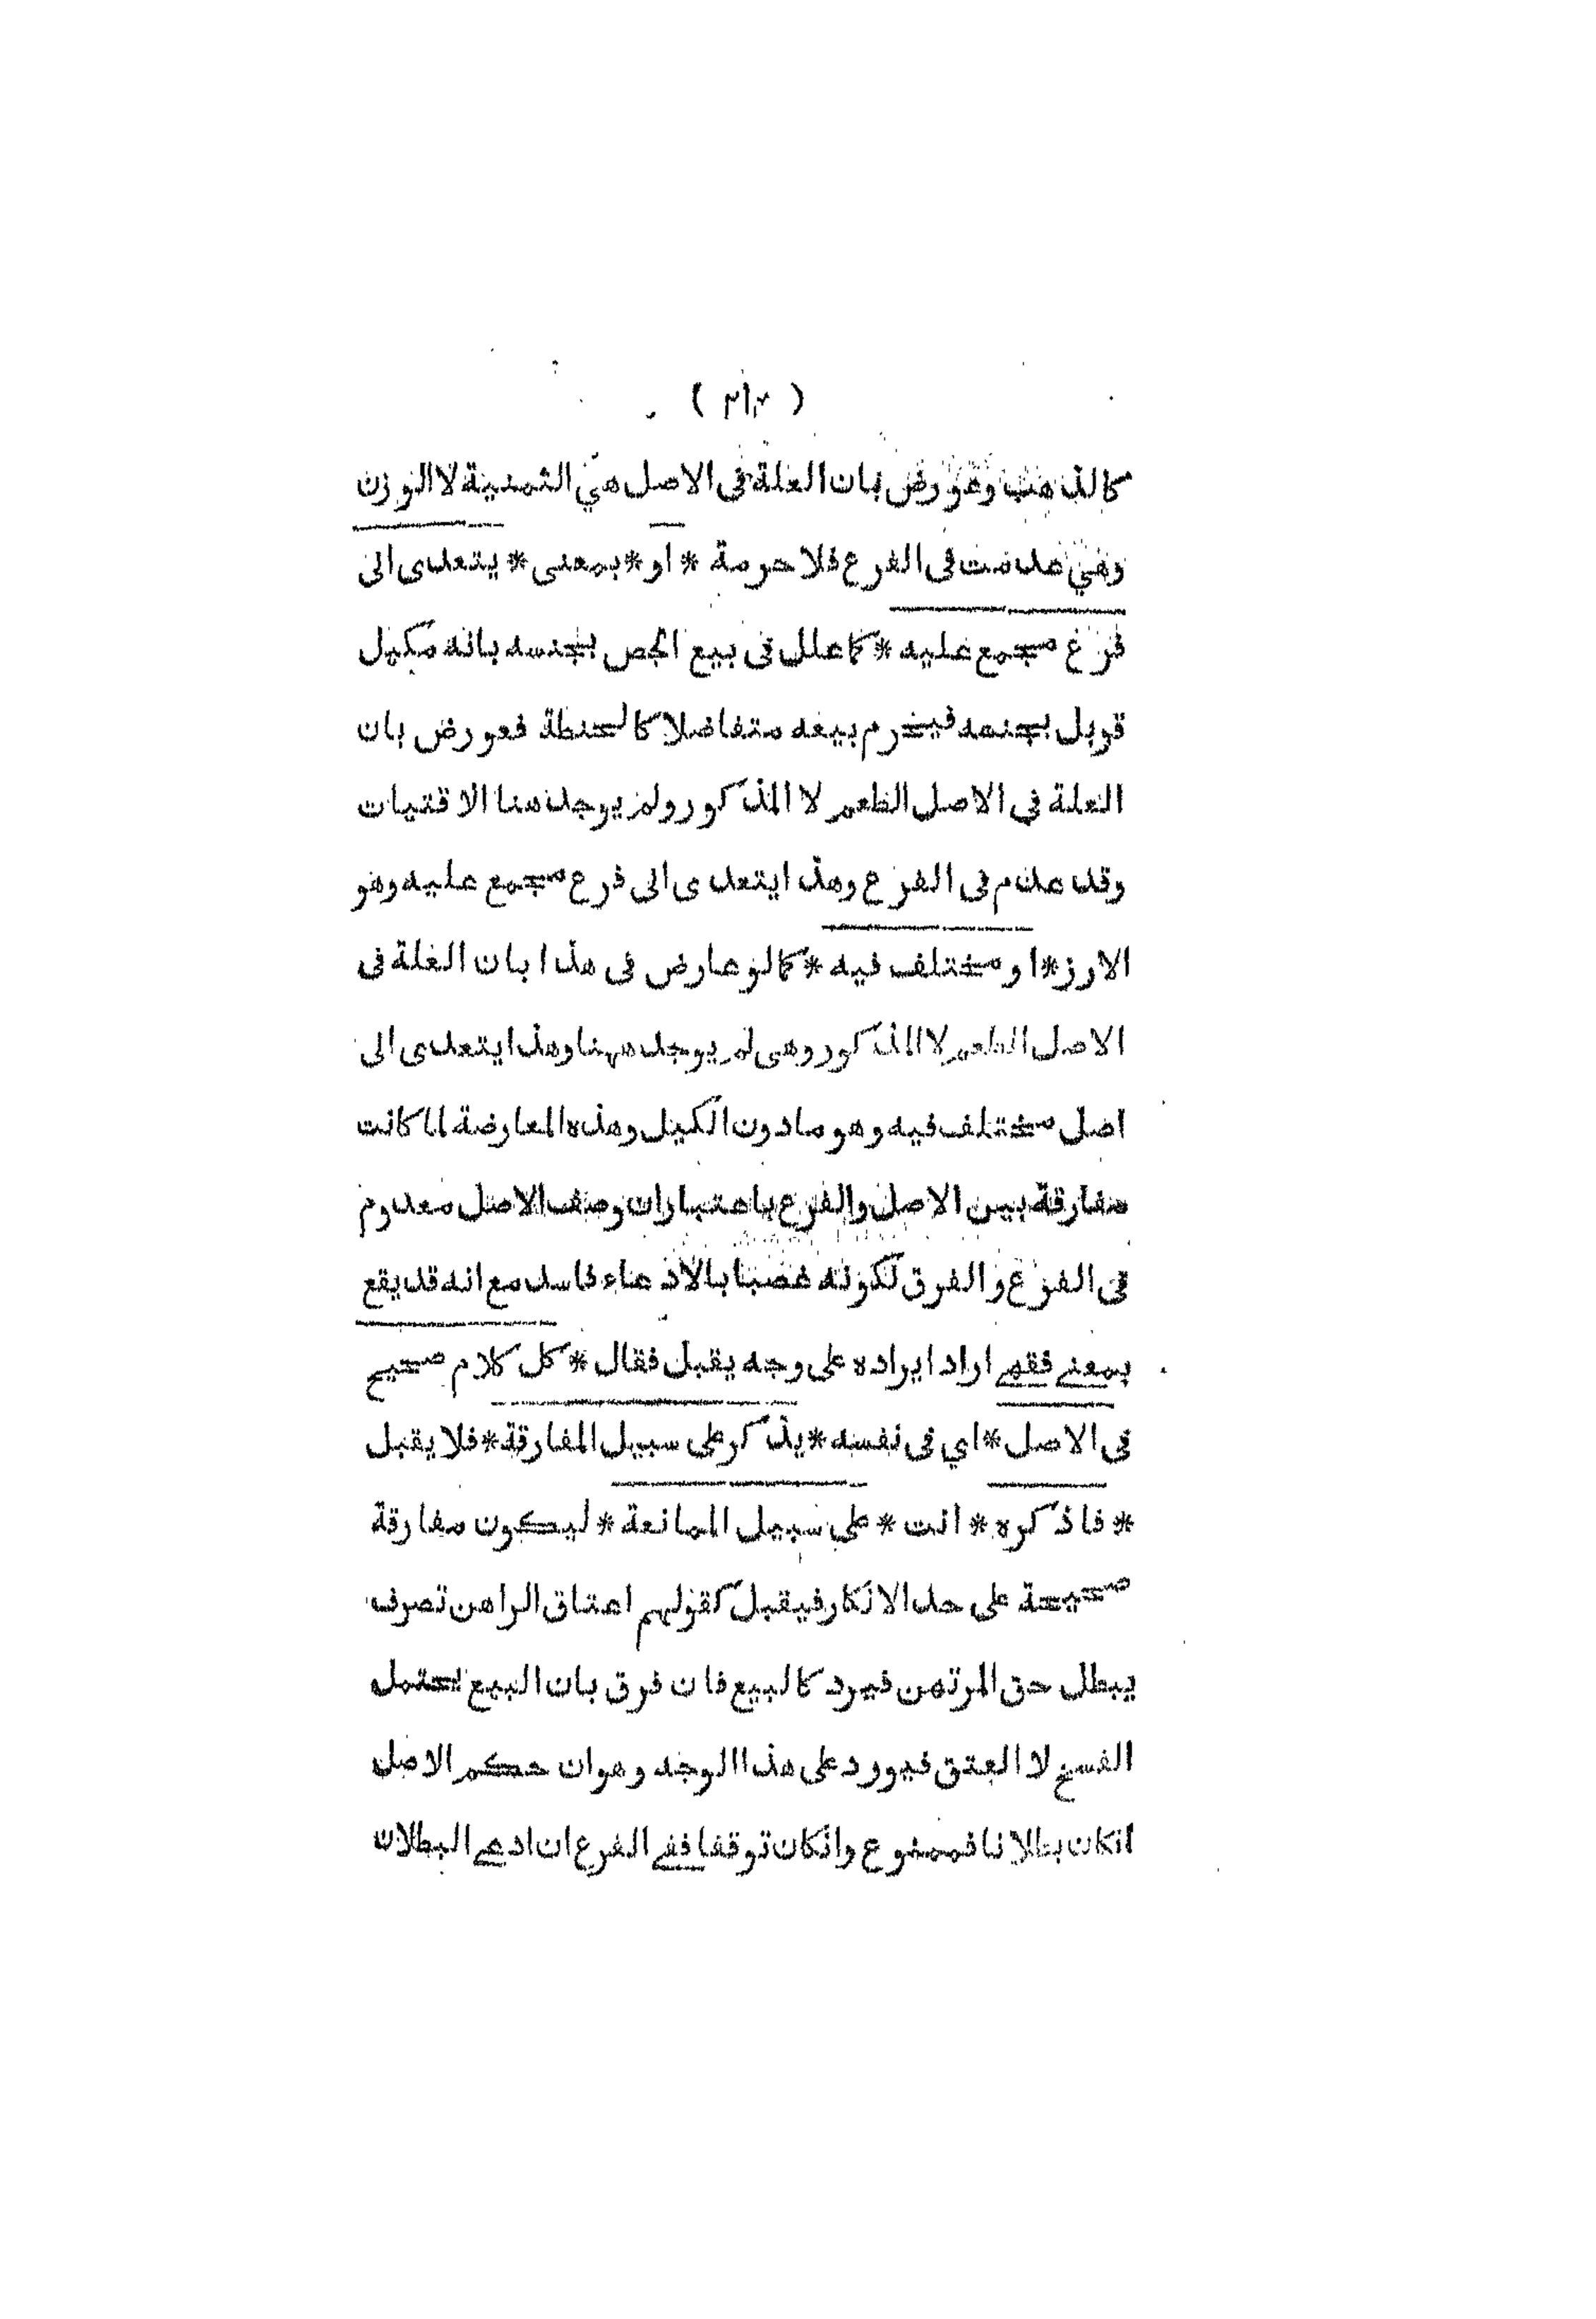 كالذهب وعورض بان العلة فى الاصل هي الثمنية لا الوزن
وهي عدمت فى الفرع فلا حرمة * او * بمعنى * يتعدى الى
فرع مجمع عليه * كما علل فى بيع الجص بجنسه بانه مكيل
قوبل بجنسه فيحرم بيعه متفاضلا كالحنطة فعورض بان
العلة في الاصل الطعم لا المذكور ولم يوجد هنا الاقتيات
وقد عدم فى الفرع وهذا يتعدى الى فرع مجمع عليه وهو
الارز * او مختلف فيه * كما لو عارض فى هذا بان العلة فى
الاصل الطعم لا المذكور وهى لم يوجد ههنا وهذا يتعدى الى
اصل مختلف فيه وهو مادون الكيل وهذه المعارضة لما كانت
مفارقة بين الاصل والفرع باعتبار ان وصف الاصل معدوم
فى الفرع و الفرق لكونه غصبا بالادعاء فاسد مع انه قد يقع
بمعنے فقهے اراد ايراده على وجه يقبل فقال * كل كلام صحيح
فى الاصل * اي فى نفسه * يذكر على سبيل المفارقة * فلا يقبل
* فاذكره * انت * على سبيل الممانعة * ليكون مفارقة
صحيحة على حد الانكار فيقبل كقولهم اعتاق الراهن تصرف
يبطل حق المرتهن فيرد كالبيع فان فرق بان البيع يحتمل
الفسخ لا العتق فيورد على هذا الوجه وهو ان حكم الاصل
انكان بطلانا فممنوع وانكان توقفا ففے الفرع ان ادعے البطلان